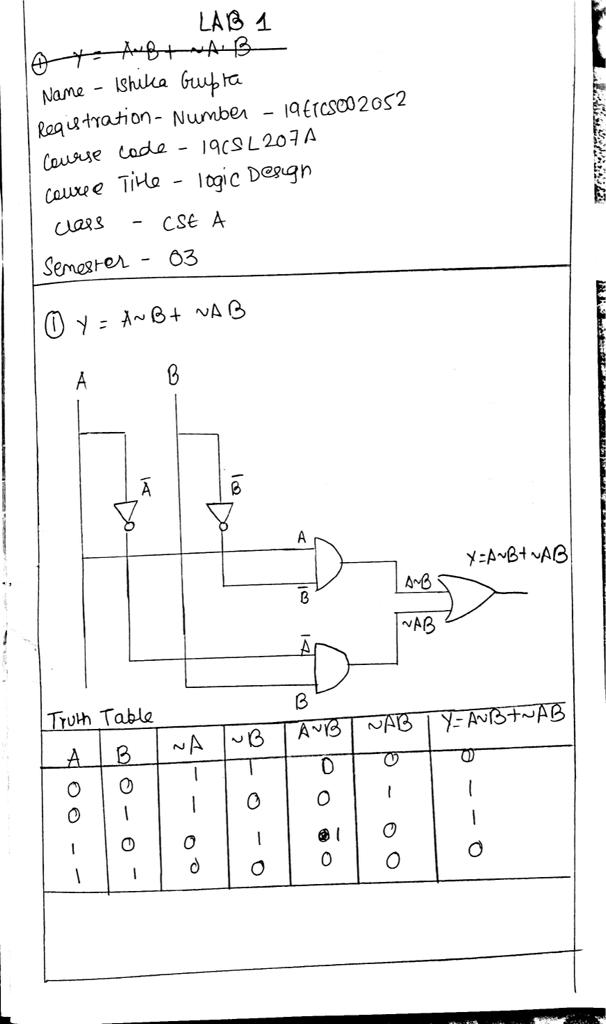 LAB 1
① Y = A~B + ~A·B
Name - Ishika Gupta
Registration- Number - 19ETCS002052
Course code - 19CSL207A
Course Title - logic Design
class - CSE A
Semester - 03
① Y = A~B + ~AB
A B
A̅ B̅
A
Y=A~B+~AB
A~B
B̅
~AB
A̅
B
Truth Table
A B ~A ~B A~B ~AB Y=A~B+~AB
0 0 1 1 0 0 0
0 1 1 0 0 1 1
1 0 0 1 1 0 1
1 1 0 0 0 0 0